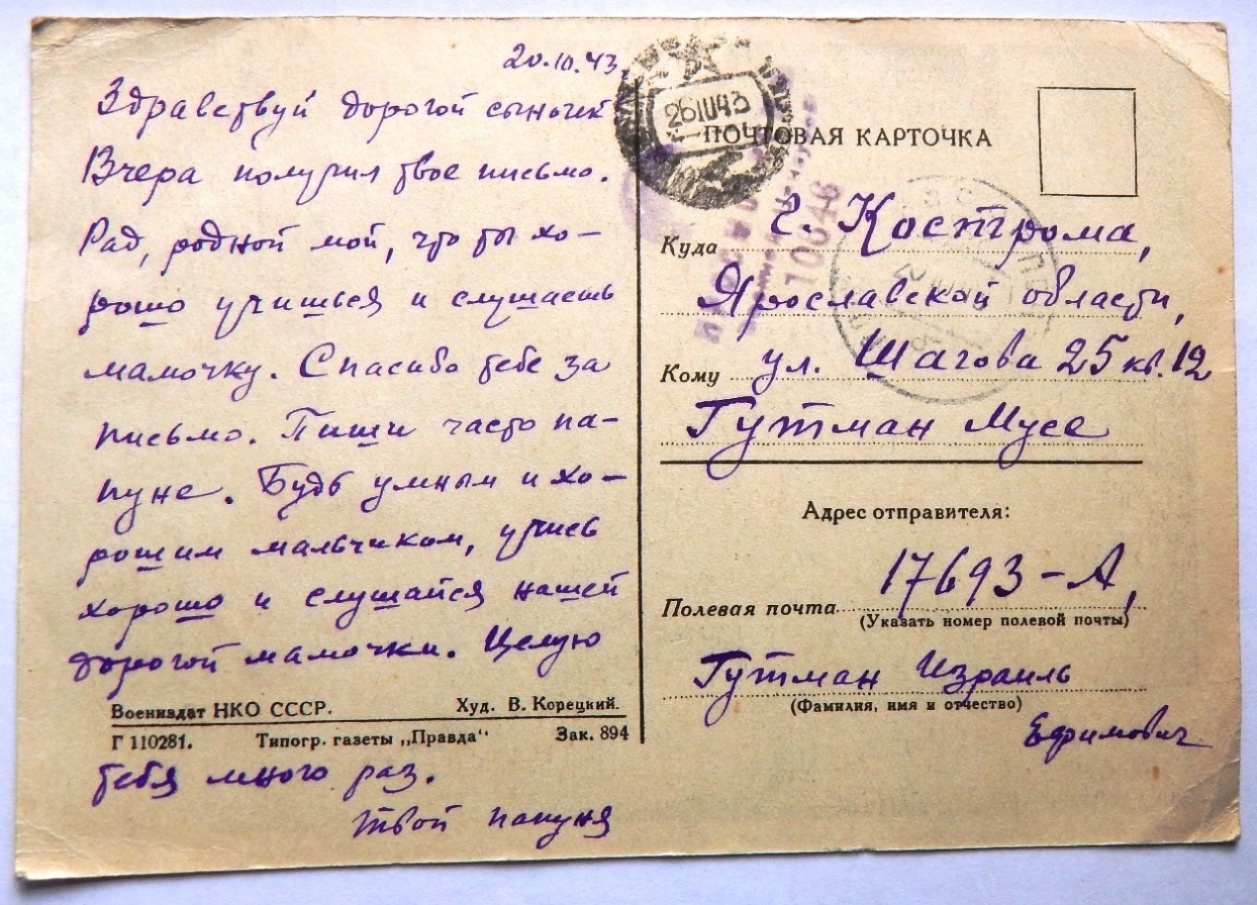 20.10.43
Здравствуй дорогой сыночек
Вчера получил твое письмо.
Рад, родной мой, что ты хо-
рошо учишься и слушаешь
мамочку. Спасибо тебе за
письмо. Пиши часто па-
пуне. Будь умным и хо-
рошим мальчиком, учись
хорошо и слушайся нашей
дорогой мамочки. Целую
Воениздат НКО СССР. Худ. В. Корецкий.
Г 110281. Типогр. газеты „Правда“ Зак. 894
тебя много раз.
Твой папуня
ПОЧТОВАЯ КАРТОЧКА
Куда г. Кострома,
Ярославской области,
Кому ул. Шагова 25 кв. 12
Гутман Мусе
Адрес отправителя:
Полевая почта 17693-А,
(Указать номер полевой почты)
Гутман Израиль
(Фамилия, имя и отчество)
Ефимович
10046